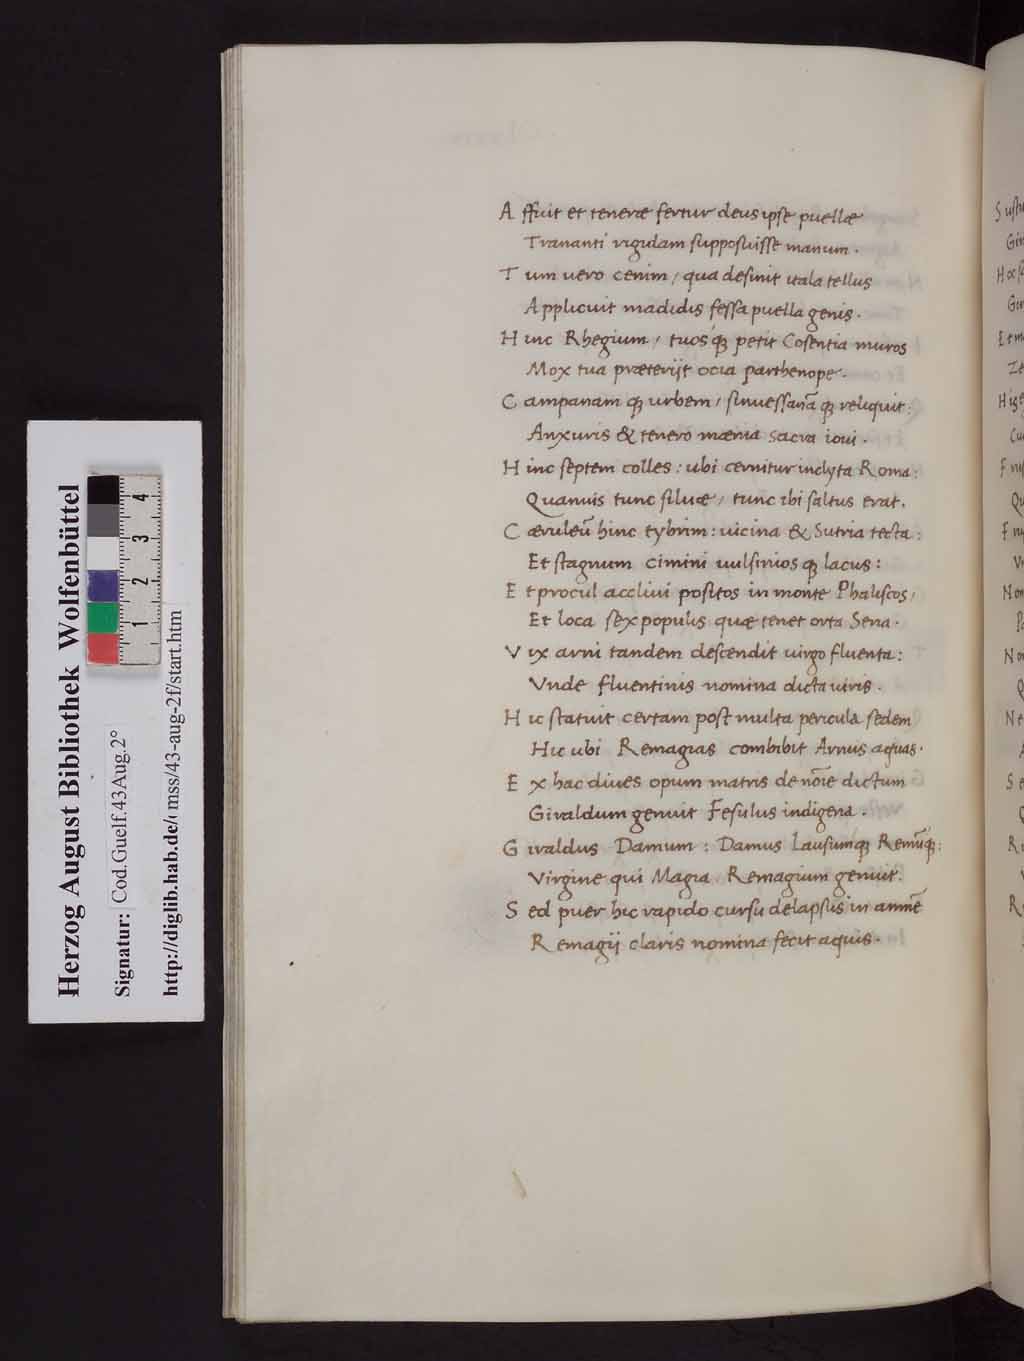 Affuit et tenerae fertur deus ipse puellae
Trananti rigidam supposuisse manum.
Tum uero cenim / qua desinit itala tellus
Applicuit madidis fessa puella genis.
Hinc Rhegium / tuosq; petit Cosentia muros
Mox tua praeterijt ocia parthenope.
Campanam q; urbem / sinuessanā q; reliquit:
Anxuris & tenero mænia sacra ioui.
Hinc septem colles: ubi cernitur inclyta Roma:
Quanuis tunc siluae / tunc ibi saltus erat.
Cæruleū hinc tybrim: uicina & Sutria tecta:
Et stagnum cimini uulsinios q; lacus:
Et procul accliui positos in monte Phaliscos /
Et loca sex populis quae tenet orta Sena.
Vix arni tandem descendit uirgo fluenta:
Vnde fluentinis nomina dicta uiris.
Hic statuit certam post multa pericula sedem
Hic ubi Remagias combibit Arnus aquas.
Ex hac diues opum matris de nōie dictum
Giraldum genuit Fesulus indigena.
Giraldus Damum: Damus Lausumq; Remūq;:
Virgine qui Magra Remagium genuit.
Sed puer hic rapido cursu delapsus in amnē
Remagij claris nomina fecit aquis.
Herzog August Bibliothek Wolfenbüttel
Signatur: Cod.Guelf.43Aug.2°
http://diglib.hab.de/mss/43-aug-2f/start.htm
1 2 3 4